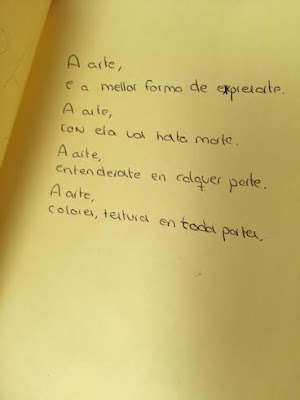 A arte,
e a mellor forma de expresarte.
A arte,
con ela vas hata marte.
A arte,
entenderate en calquer parte.
A arte,
colores, textura en toda partes.